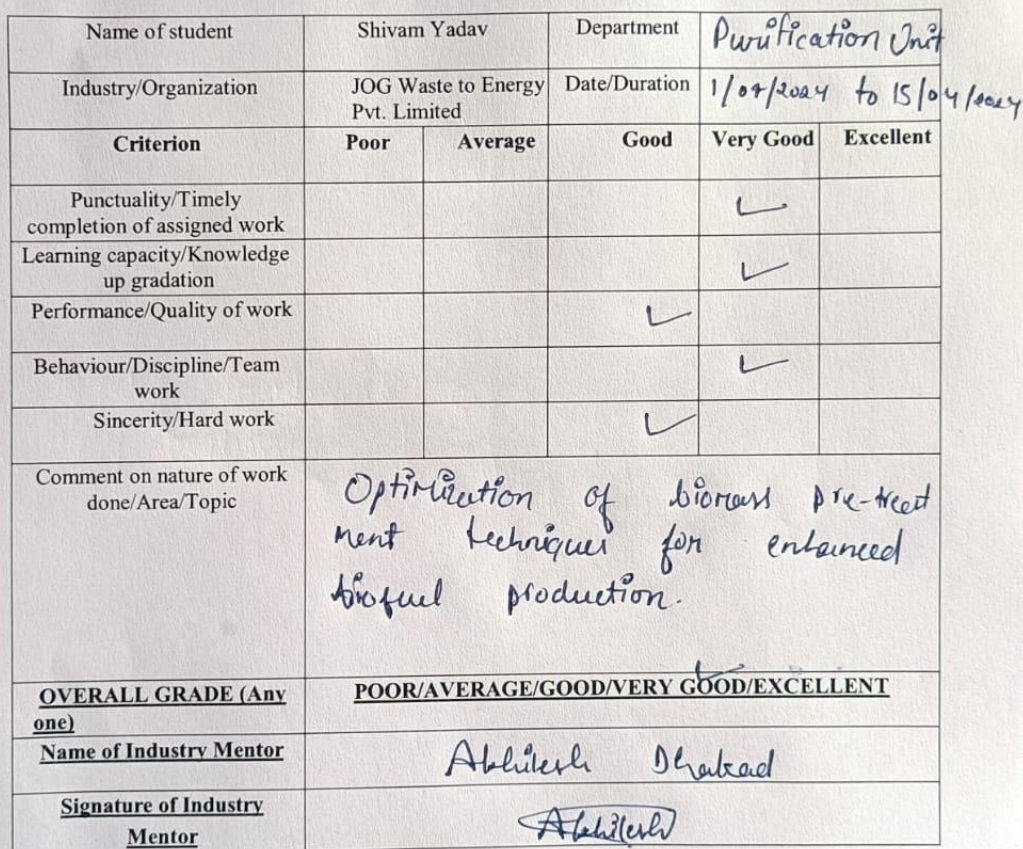 Name of student Shivam Yadav Department Purification Unit
Industry/Organization JOG Waste to Energy Date/Duration 1/04/2024 to 15/04/2024
Pvt. Limited
Criterion Poor Average Good Very Good Excellent
Punctuality/Timely
completion of assigned work
Learning capacity/Knowledge
up gradation
Performance/Quality of work
Behaviour/Discipline/Team
work
Sincerity/Hard work
Comment on nature of work
done/Area/Topic
Optimization of biomass pre-treat
ment techniques for enhanced
biofuel production.
OVERALL GRADE (Any
one)
POOR/AVERAGE/GOOD/VERY GOOD/EXCELLENT
Name of Industry Mentor Abhilesh Dhakad
Signature of Industry
Mentor
Abhilesh